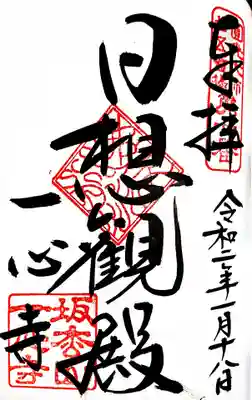 奉拝
令和二年一月十八日
日想観殿
一心寺